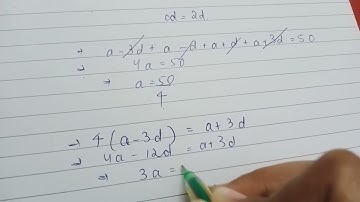 cd = 2d
→ a - 3d + a - d + a + d + a + 3d = 50
→ 4a = 50
→ a = 50/4
→ 4(a - 3d) = a + 3d
→ 4a - 12d = a + 3d
⇒ 3a =